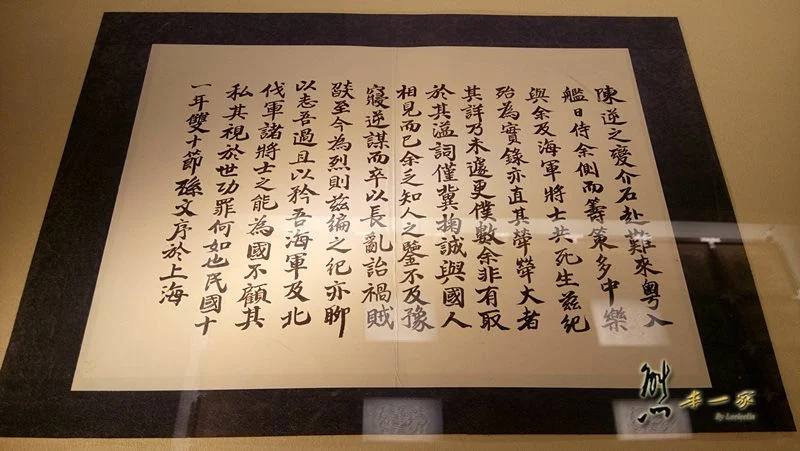 陳逆之變介石赴難來粵入
艦日侍余側而籌策多中樂
與余及海軍將士共死生茲紀
殆為實錄亦直其犖犖大者
其詳乃未遽更僕數余非有取
於其溢詞僅冀掬誠與國人
相見而已余乏知人之鑒不及豫
寢逆謀而卒以長亂詒禍賊
燄至今為烈則茲編之紀亦聊
以志吾過且以矜吾海軍及北
伐軍諸將士之能為國不顧其
私其視於世功罪何如也民國十
一年雙十節孫文序於上海
熊本一家
By Leeleelin